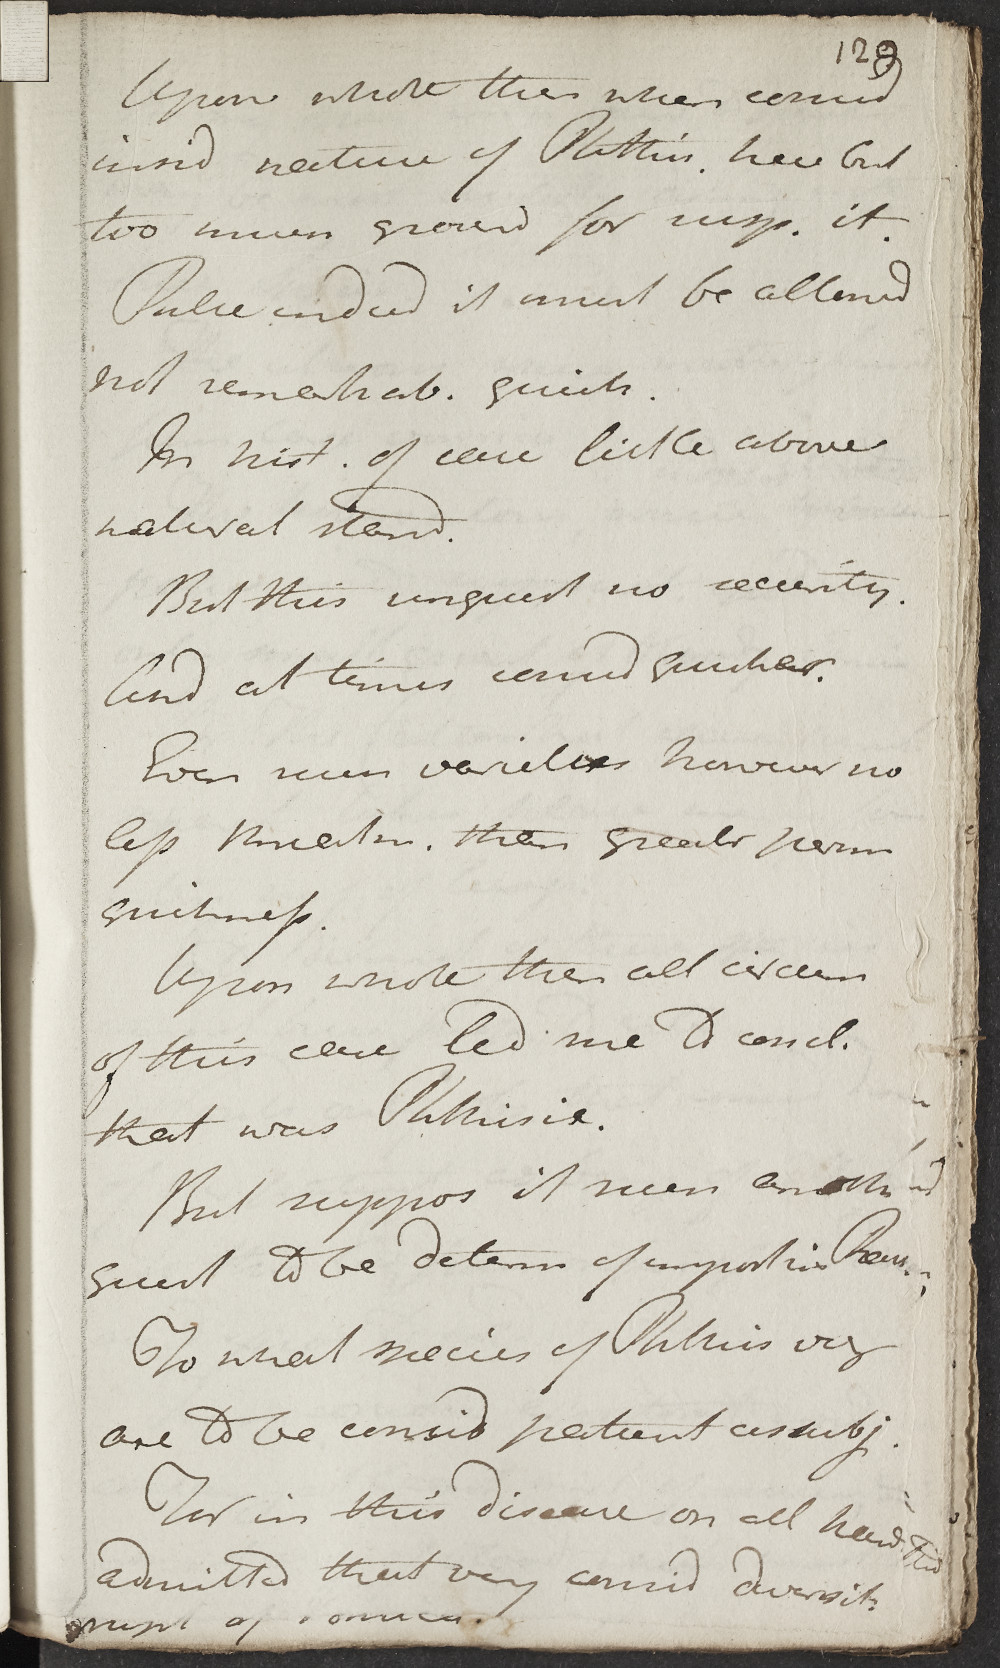 129
Upon whole then when consid
insid nature of Phthis. have but
too much ground for susp. it.
Pulse indeed it must be allowed
not remarkab. quick.
In hist. of case little above
natural stand.
But this unquest no security.
And at times consid quicker.
Even such varieties however no
less than greater perm
quickness.
Upon whole then all circum
of this case led me to concl.
that was Phthisis.
But suppos it such another
quest to be determ of import in
To what species of Phthisis
are to be consid patient as subj.
For in this disease on all hand
admitted that very consid diversit.
of